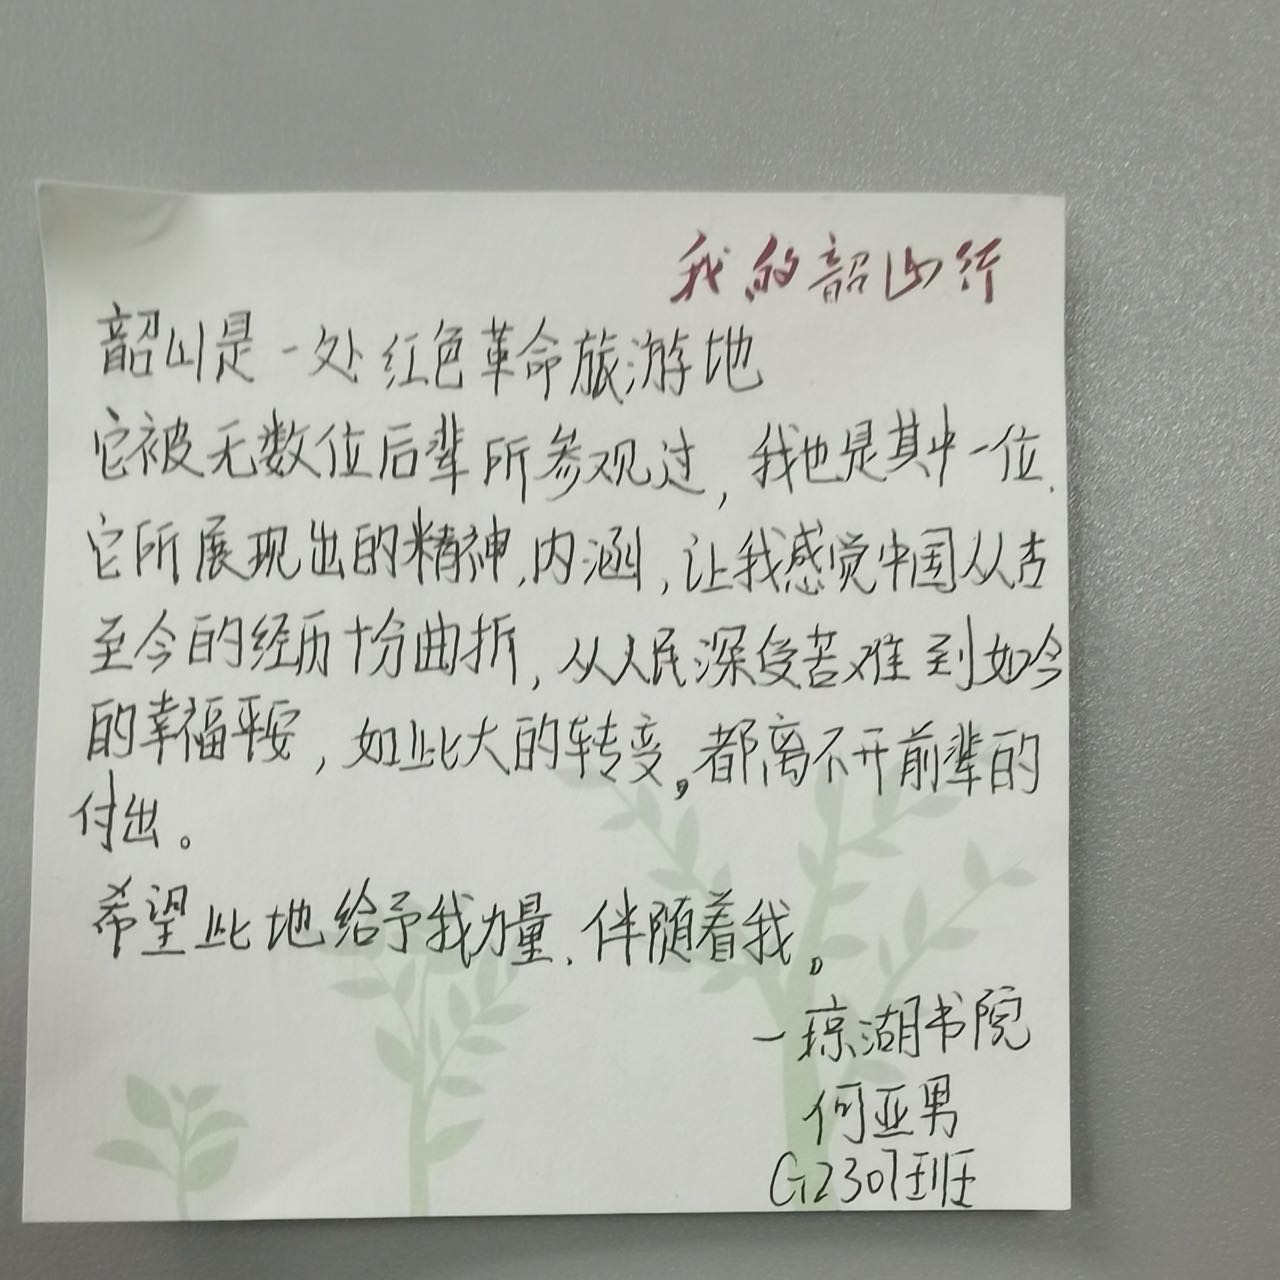 我的韶山行
韶山是一处红色革命旅游地
它被无数位后辈所参观过,我也是其中一位.
它所展现出的精神,内涵,让我感觉中国从古
至今的经历十分曲折,从人民深受苦难到如今
的幸福平安,如此大的转变。都离不开前辈的
付出。
希望此地给予我力量.伴随着我。
一琼湖书院
何亚男
G2307班